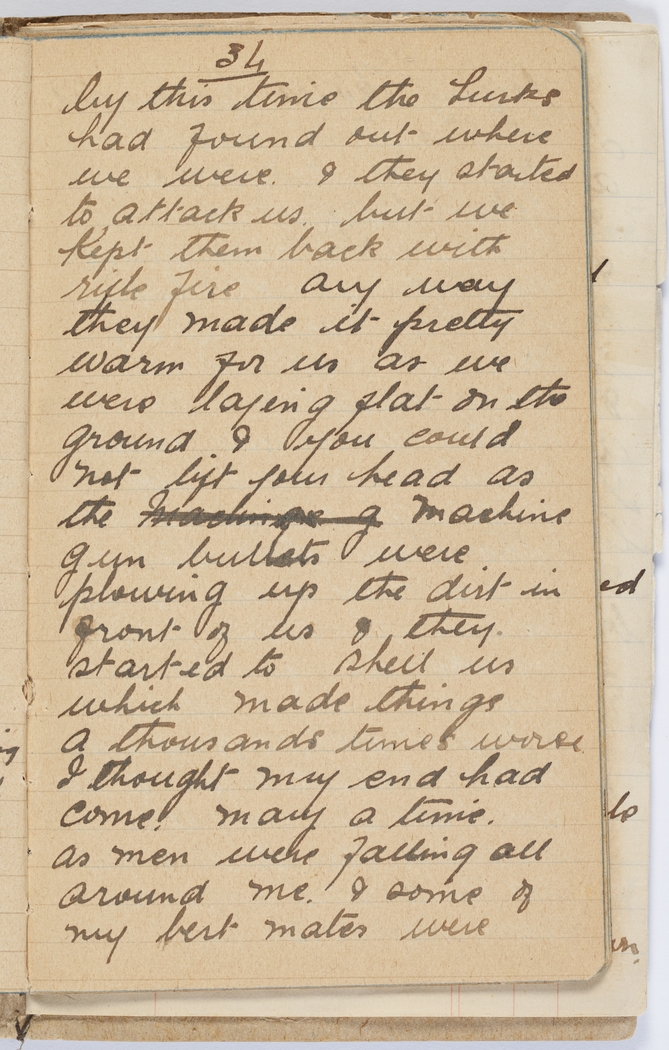 34
by this time the Turks
had found out where
we were. & they started
to attack us. but we
kept them back with
rifle fire any way
they made it pretty
warm for us as we
were laying flat on the
ground & you could
not lift your head as
the Machine g Machine
gun bullets were
plowing up the dirt in
front of us & they.
started to shell us
which made things
a thousands times worse
I thought my end had
come. many a time.
as men were falling all
around me. & some of
my best mates were